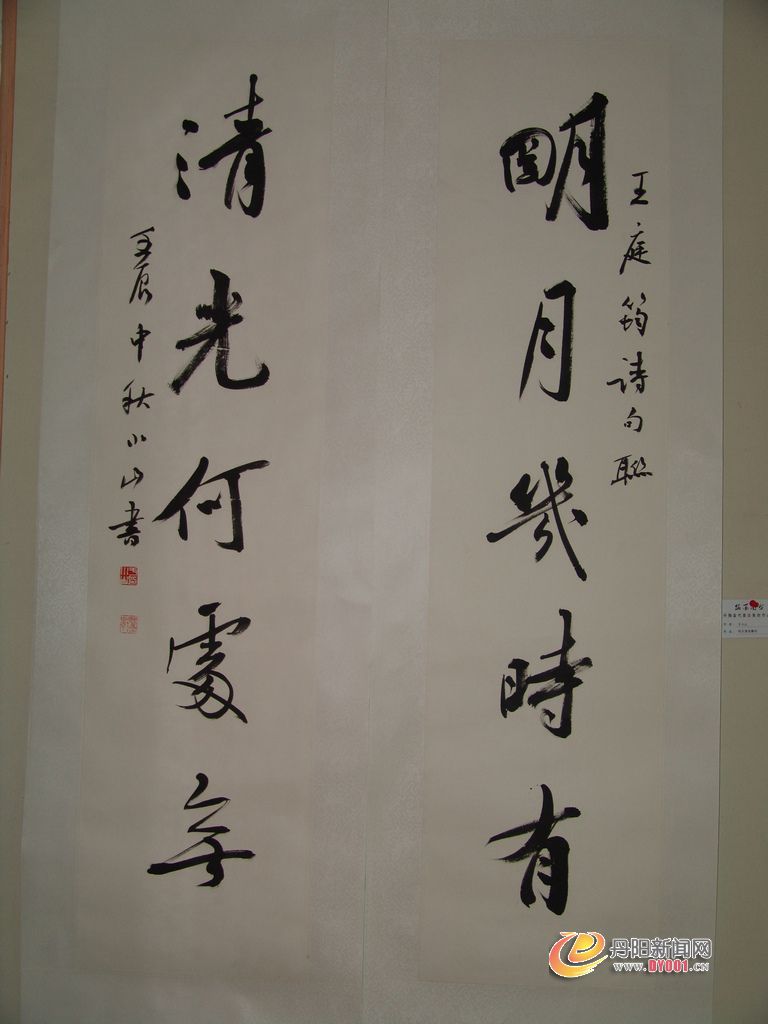 王庭筠詩句聯
明月幾時有
清光何處無
壬辰中秋小山書
丹阳新闻网
www.DY001.CN